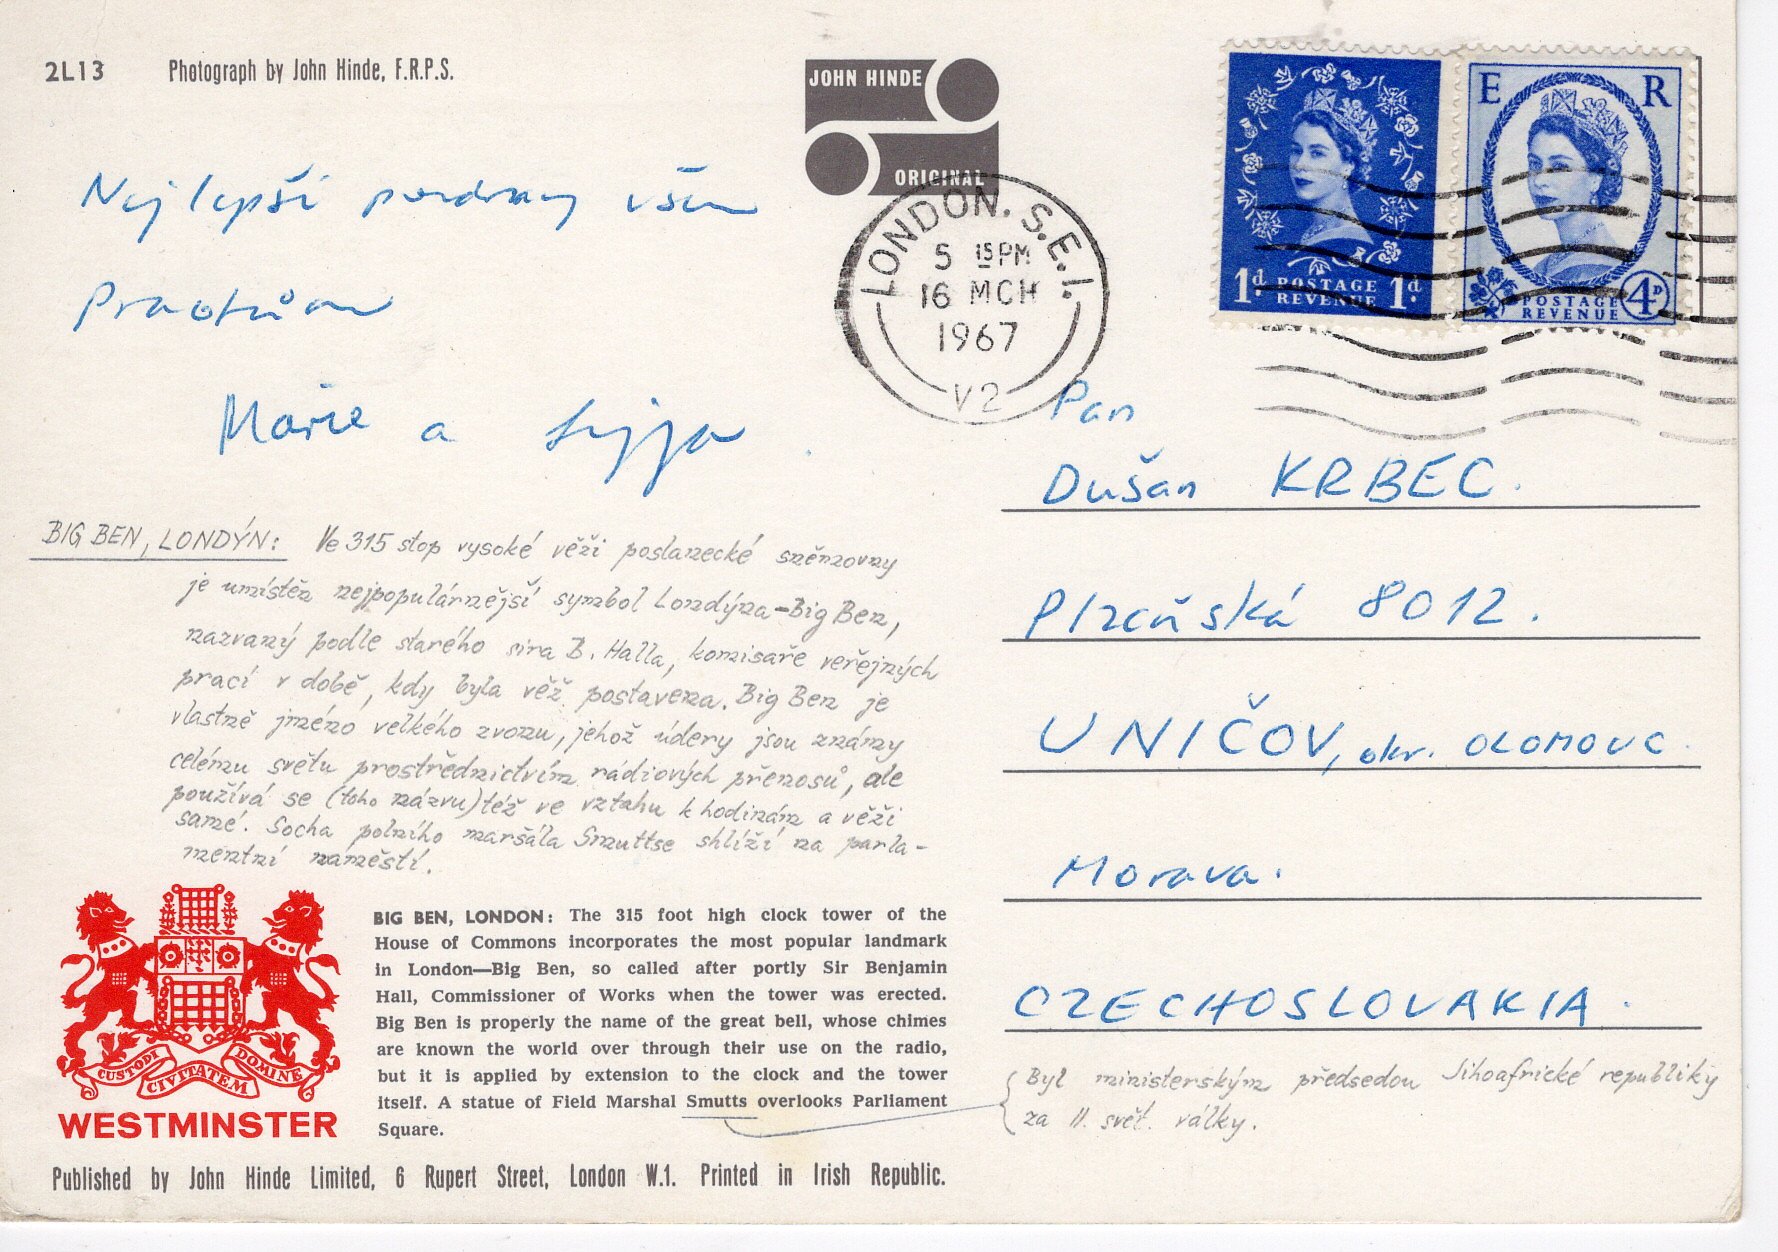 2L13 Photograph by John Hinde, F.R.P.S.
JOHN HINDE
ORIGINAL
E R
1d. POSTAGE REVENUE 1d.
POSTAGE REVENUE 4D
LONDON. S.E.1.
5 15 PM
16 MCH
1967
V2
Nejlepší pozdravy všem
Marie a
Pan
Dušan KRBEC.
Plzeňská 8012.
UNIČOV, okr. OLOMOUC.
Morava.
CZECHOSLOVAKIA.
BIG BEN, LONDÝN: Ve 315 stop vysoké věži poslanecké sněmovny
je umístěn nejpopulárnější symbol Londýna - Big Ben,
nazvaný podle starého sira B. Halla, komisaře veřejných
prací v době, kdy byla věž postavena. Big Ben je
vlastně jméno velkého zvonu, jehož údery jsou známy
celému světu prostřednictvím rádiových přenosů, ale
používá se (toho názvu) též ve vztahu k hodinám a věži
samé. Socha polního maršála Smuttse shlíží na parla-
mentní náměstí.
BIG BEN, LONDON: The 315 foot high clock tower of the
House of Commons incorporates the most popular landmark
in London—Big Ben, so called after portly Sir Benjamin
Hall, Commissioner of Works when the tower was erected.
Big Ben is properly the name of the great bell, whose chimes
are known the world over through their use on the radio,
but it is applied by extension to the clock and the tower
itself. A statue of Field Marshal Smutts overlooks Parliament
Square.
Byl ministerským předsedou Jihoafrické republiky
za II. svět. války.
CUSTODI CIVITATEM DOMINE
WESTMINSTER
Published by John Hinde Limited, 6 Rupert Street, London W.1. Printed in Irish Republic.